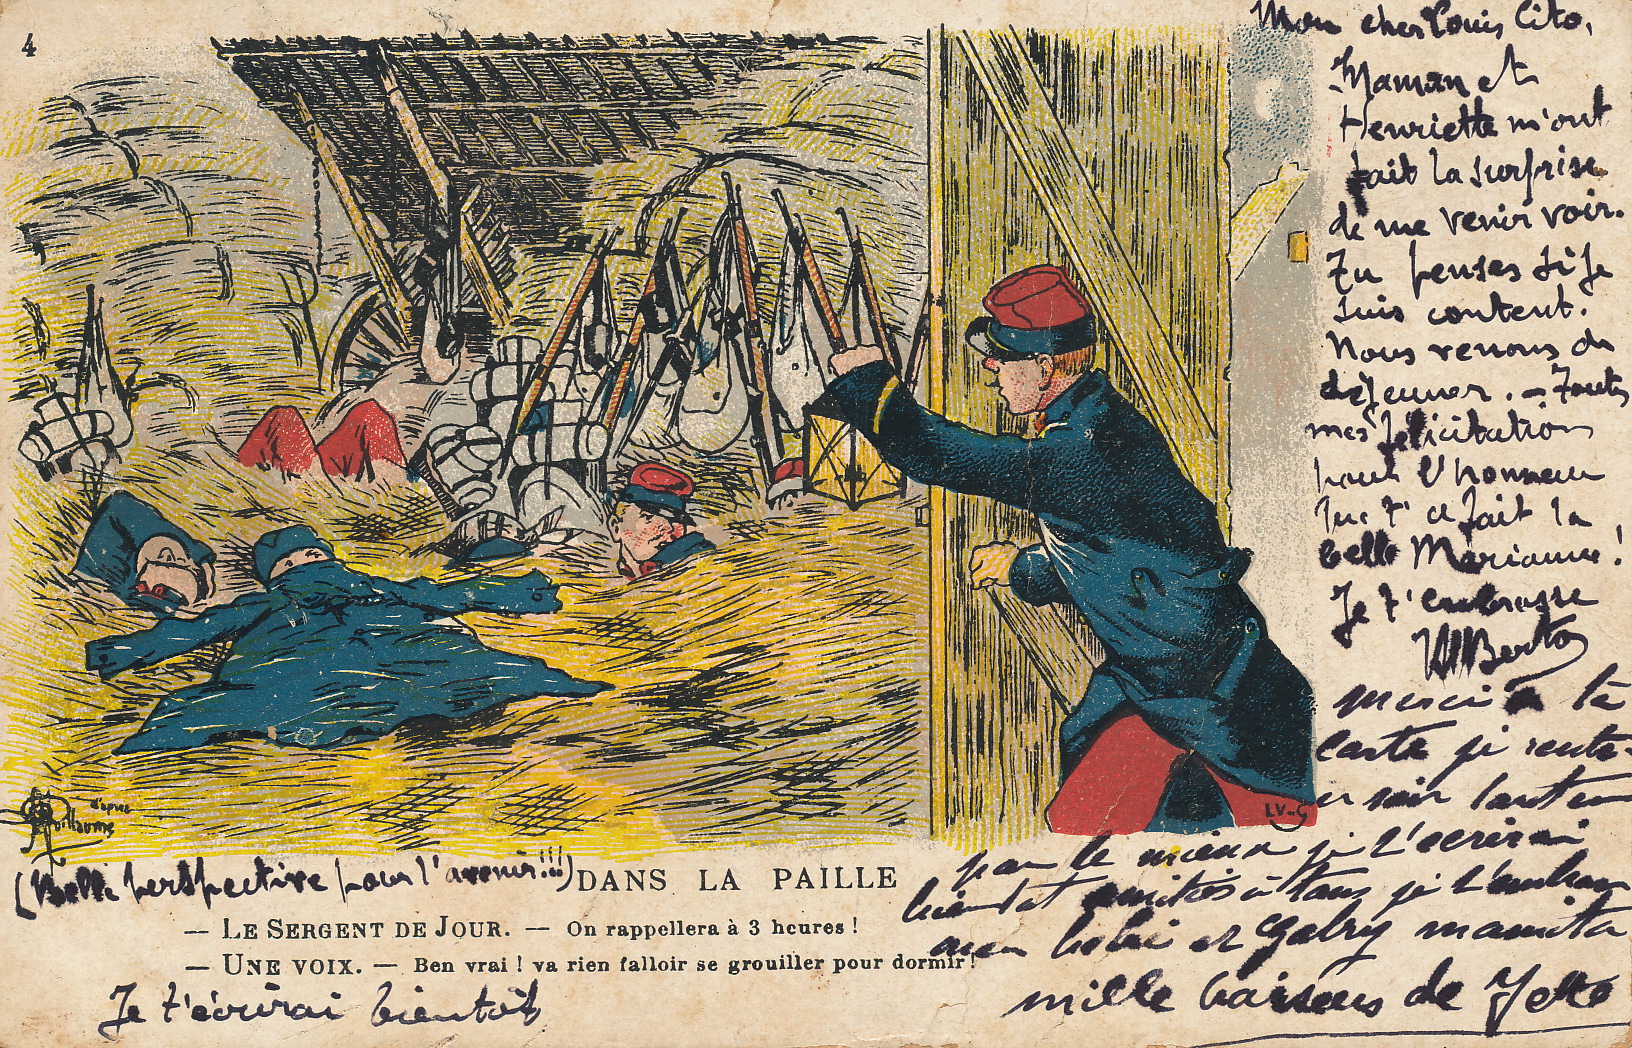 4
Mon cher Louis Cito,
Maman et
Henriette m'ont
fait la surprise
de me venir voir.
Tu penses si je
suis content.
Nous venons de
déjeuner. — Toutes
mes félicitations
pour l'honneur
que t'a fait la
belle Marianne!
Je t'embrasse
Berto
merci à ta
carte je
soir
par le mieux je t'écrirai
bientot amitiés à tous je t'embrasse
mon bébé et Gabry mamita
mille baisers de Yette
d'après
Guillaume
LV & G
(Belle perspective pour l'avenir!!!)
DANS LA PAILLE
— LE SERGENT DE JOUR. — On rappellera à 3 heures !
— UNE VOIX. — Ben vrai ! va rien falloir se grouiller pour dormir !
Je t'écrirai bientôt